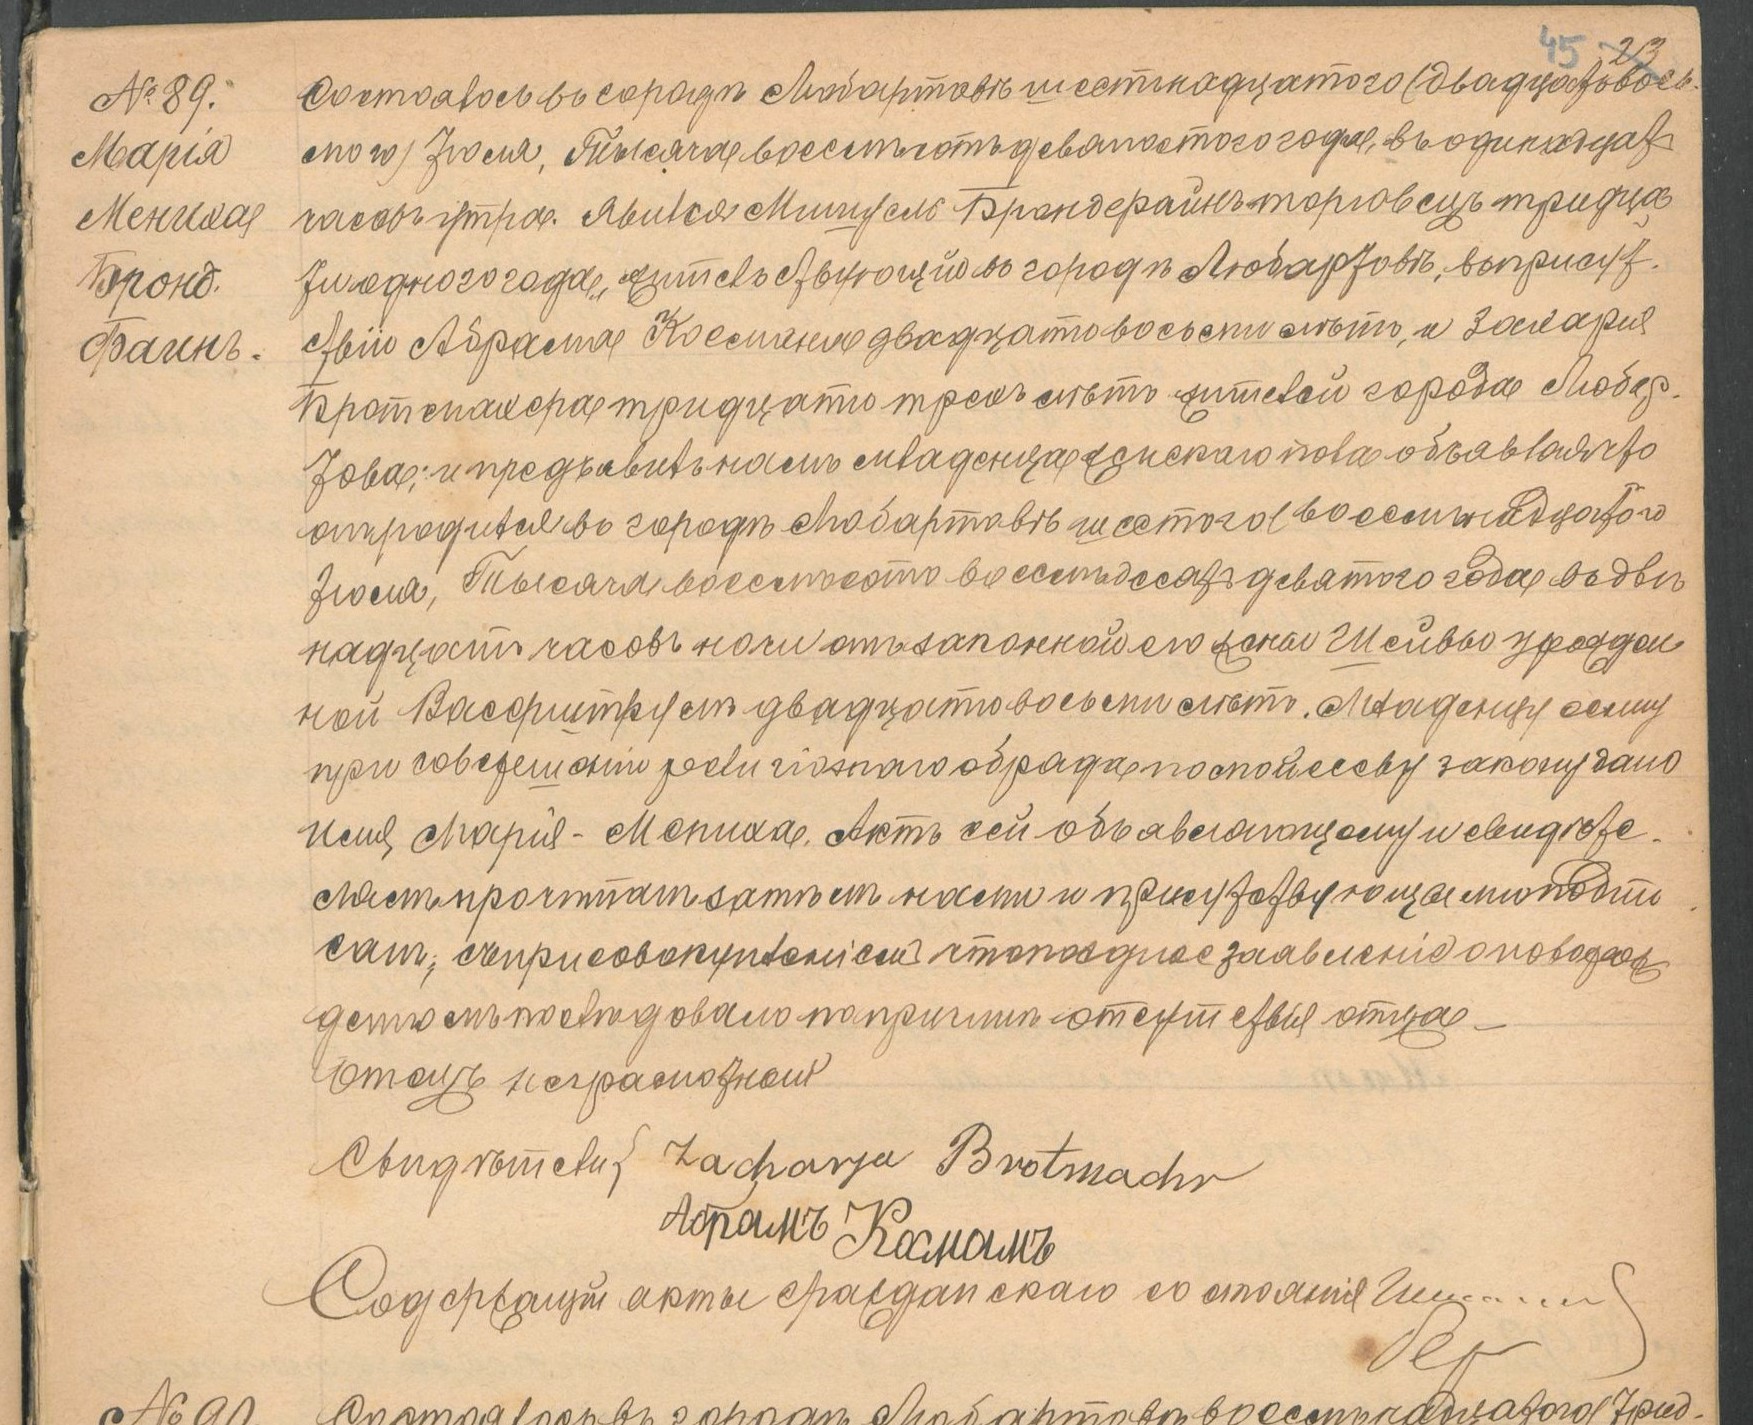 45 23
№ 89.
Марія
Мениха
Бронд.
Фаинъ.
Состоялось въ городѣ Любартовѣ шестнадцатого (двадцать вось-
мого) Іюля, Тысяча восемьсотъ девяностого года, въ одинадцать
часовъ утра. Явился Брондфайнъ торговецъ тридца
ти одного года, жительствующій въ городѣ Любартовѣ, въ присут-
ствіи Абрама Космана двадцати восьми лѣтъ, и Захарія
Бротмахера тридцати трехъ лѣтъ жителей города Любар-
това; и предъявилъ намъ младенца женскаго пола объявляя что
онъ родился въ городѣ Любартовѣ шестого (восемнадцатого
Іюля, Тысяча восемьсотъ восемьдесятъ девятого года въ двѣ
надцать часовъ ночи отъ законной его жены Шейвы урожден
ной двадцати восьми лѣтъ. Младенцу сему
при совершеніи религіознаго обряда по моисееву закону дано
имя, Марія - Мениха. Актъ сей объявляющему и свидѣте-
лямъ прочитанъ затѣмъ нами и присутствующими подпи
санъ; съ присовокупленіемъ что позднее заявленіе о новорож
денномъ послѣдовало по причинѣ отсутствія отца –
Отецъ неграмотный
Свидѣтели { Zacharja Brotmachr
Абрамъ Косманъ
Содержащій акты гражданскаго состоянія
№ 90. Состоялось въ городѣ Любартовѣ восемнадцатого (трид-